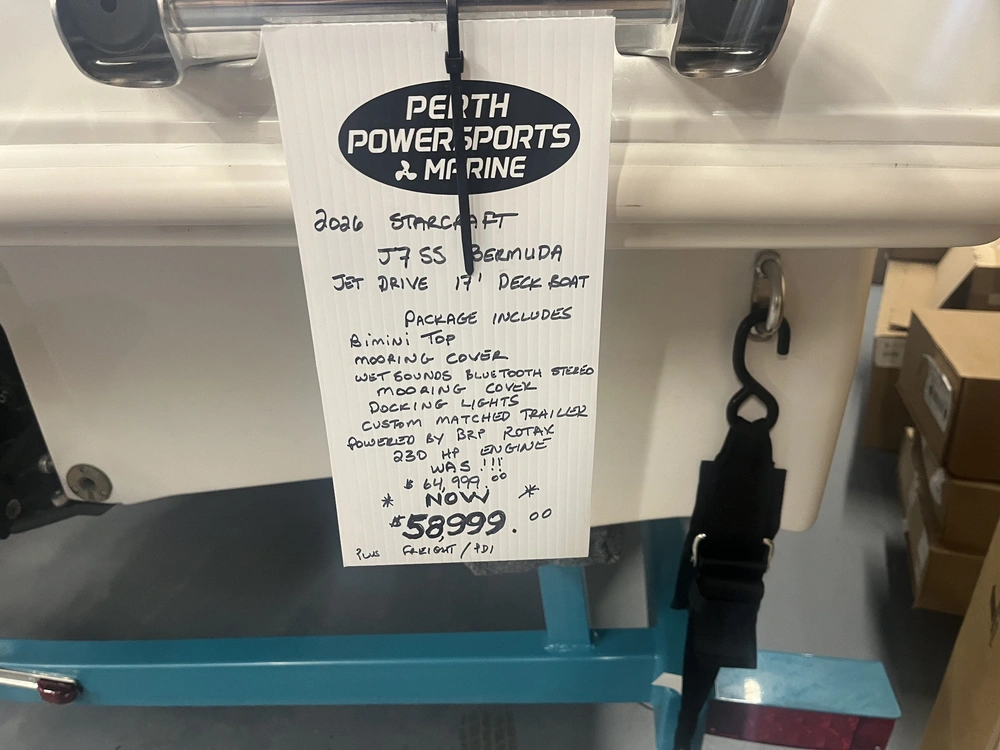 PERTH
POWERSPORTS
& MARINE
2026 STARCRAFT
J7 SS BERMUDA
JET DRIVE 17' DECK BOAT
PACKAGE INCLUDES
BIMINI TOP
MOORING COVER
WET SOUNDS BLUETOOTH STEREO
MOORING COVER
DOCKING LIGHTS
CUSTOM MATCHED TRAILER
POWERED BY BRP ROTAX
230 HP ENGINE
WAS !!!
$ 64,999.00
* NOW *
$58,999.00
PLUS FREIGHT / PDI